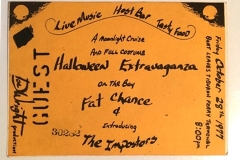 Live Music Host Bar Tasty Food
A Moonlight Cruise
And Full Costume
Halloween Extravaganza
On The Bay
Fat Chance
&
Introducing
The Impostors
30252
GUEST
Ed Wright
productions
Friday October 28th 1977
Boat Leaves Tiburon Ferry Terminal
8:00pm